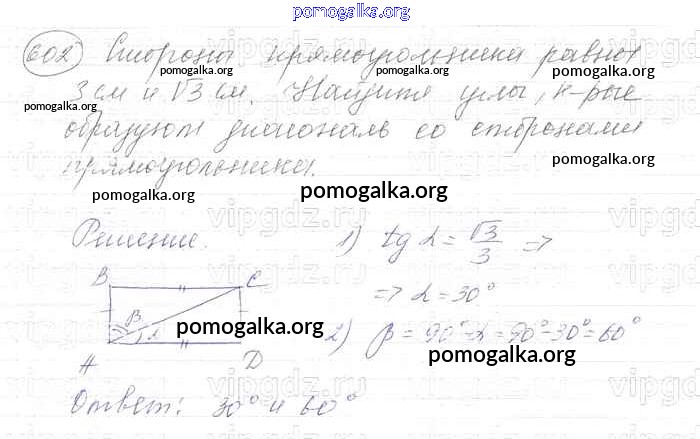 pomogalka.org
602 Стороны прямоугольника равны
3 см и √3 см. Найдите углы, к-рые
образуют диагональ со сторонами
прямоугольника.
pomogalka.org
pomogalka.org
pomogalka.org
pomogalka.org
pomogalka.org
pomogalka.org
pomogalka.org
Решение.
1) tg α = √3/3 =>
=> α = 30°
B C
β α
pomogalka.org
2) β = 90° - α = 90° - 30° = 60°
pomogalka.org
A D
Ответ: 30° и 60°
vipgdz.ru